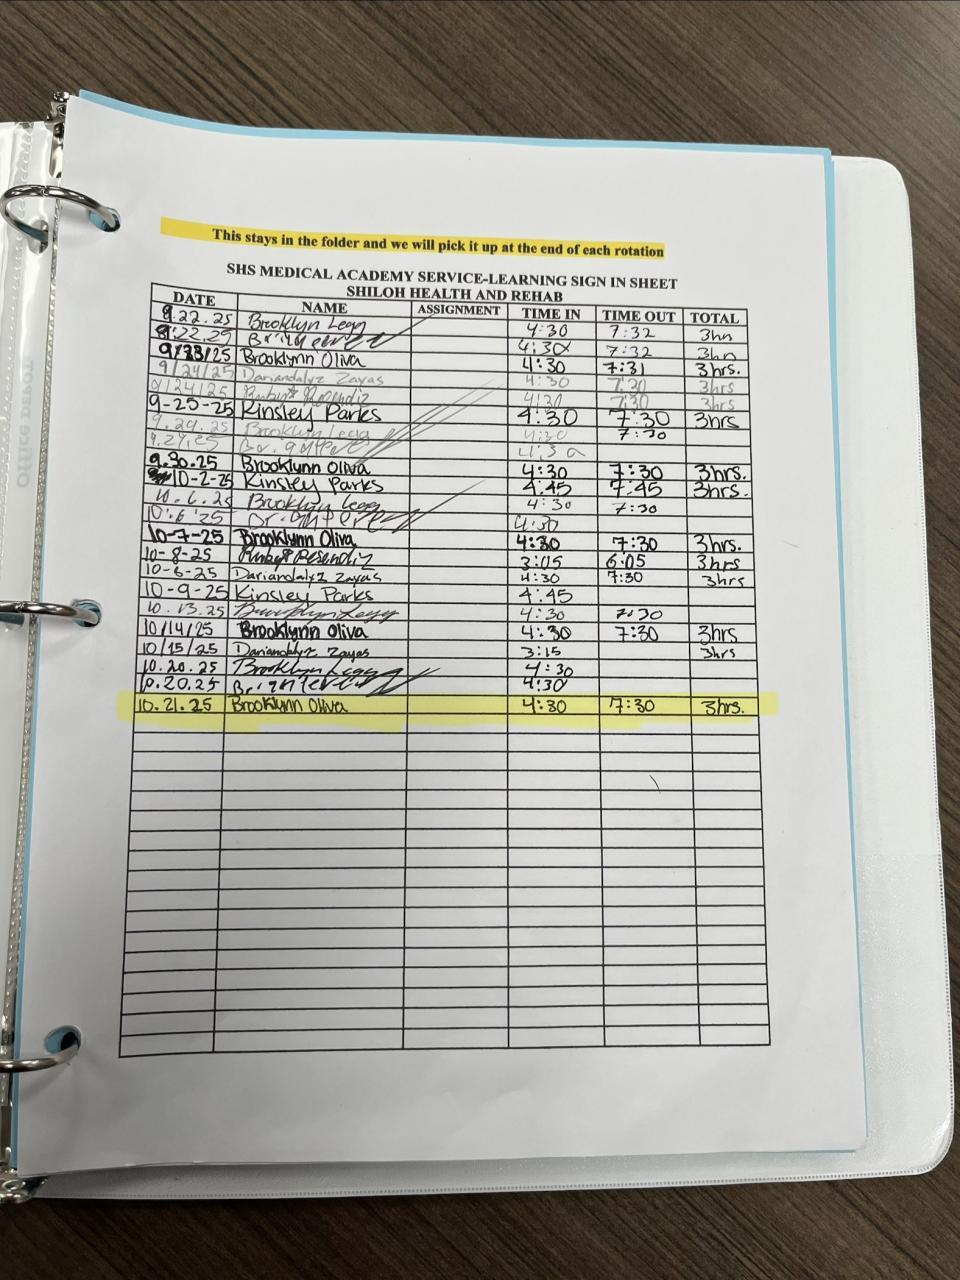 This stays in the folder and we will pick it up at the end of each rotation
SHS MEDICAL ACADEMY SERVICE-LEARNING SIGN IN SHEET
SHILOH HEALTH AND REHAB
DATE NAME ASSIGNMENT TIME IN TIME OUT TOTAL
9.22.25 Brooklyn Legg 4:30 7:32 3hn
22.25 4:30 7:32 3hn
9/23/25 Brooklynn Oliva 4:30 7:31 3hrs.
9/24/25 Dariandalyz Zayas 4:30 7:30 3hrs
9/24/25 Ruby Resendiz 4:30 7:30 3hrs
9-25-25 Kinsley Parks 4:30 7:30 3hrs
9.29.25 Brooklyn Legg 4:30 7:30
4:30
9.30.25 Brooklynn Oliva 4:30 7:30 3hrs.
10-2-25 Kinsley Parks 4:45 7:45 3hrs.
10.6.25 Brooklyn Legg 4:30 7:30
10.6.25 4:30
10-7-25 Brooklynn Oliva 4:30 7:30 3hrs.
10-8-25 Ruby Resendiz 3:05 6:05 3hrs
10-6-25 Dariandalyz Zayas 4:30 7:30 3hrs
10-9-25 Kinsley Parks 4:45
10.13.25 Brooklyn Legg 4:30 7:30
10/14/25 Brooklynn Oliva 4:30 7:30 3hrs
10/15/25 Dariandalyz Zayas 3:15 3hrs
10.20.25 Brooklyn Legg 4:30
10.20.25 4:30
10.21.25 Brooklynn Oliva 4:30 7:30 3hrs.
Office DEPOT